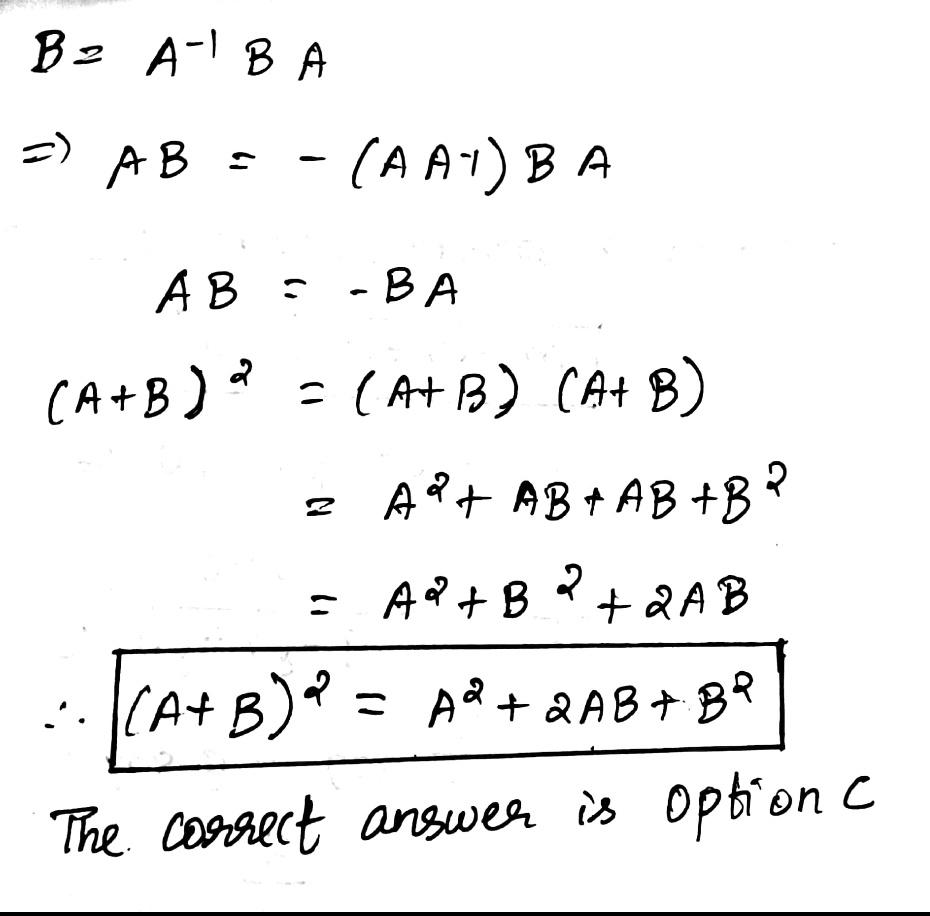 B = A⁻¹ B A
⇒ AB = - (A A⁻¹) B A
AB = - B A
(A+B)² = (A+B) (A+B)
= A² + AB + AB + B²
= A² + B² + 2AB
∴ (A+B)² = A² + 2AB + B²
The correct answer is option C